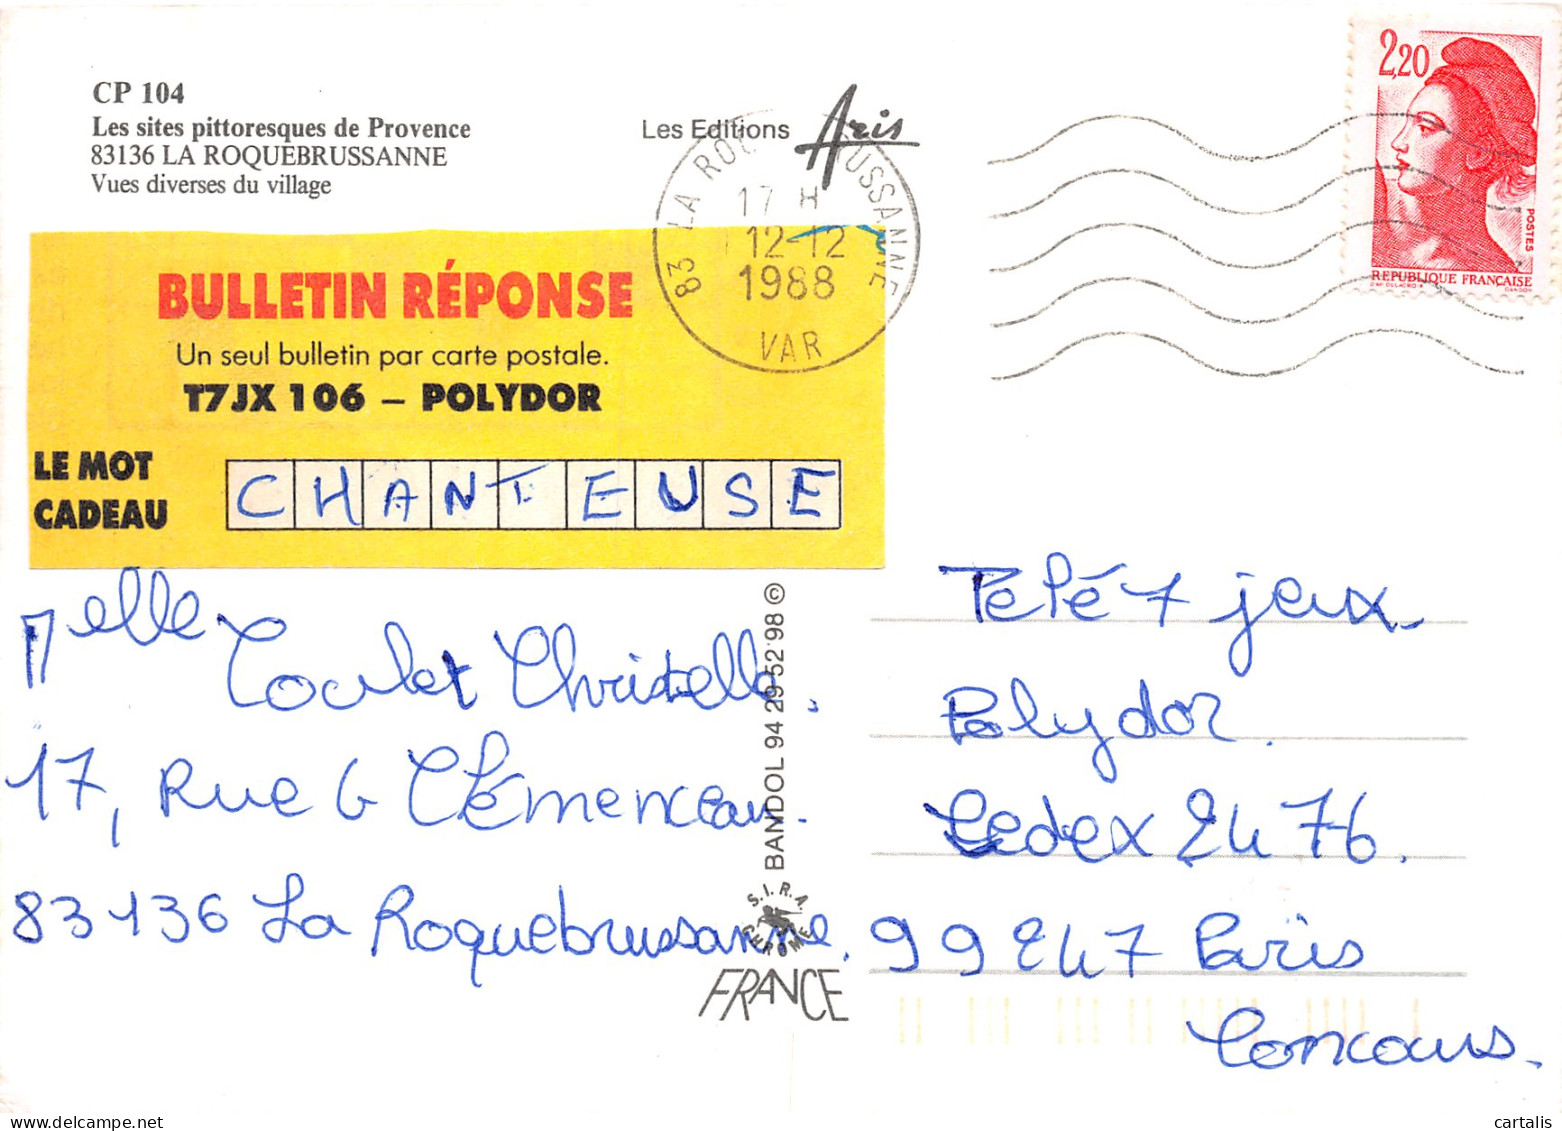 CP 104
Les sites pittoresques de Provence
83136 LA ROQUEBRUSSANNE
Vues diverses du village
Les Editions Aris
83 LA ROQUEBRUSSANNE
17 H
12-12
1988
VAR
2,20
POSTES
REPUBLIQUE FRANÇAISE
D'AP. DELACROIX GANDON
BULLETIN RÉPONSE
Un seul bulletin par carte postale.
T7JX 106 – POLYDOR
LE MOT
CADEAU
CHANTEUSE
Melle Toulet Christelle.
17, Rue G Clémenceau.
83136 La Roquebrussanne.
BANDOL 94 29 52 98 ©
S.I.R.A.
FRANCE
Télé 7 jeux
Polydor.
Cedex 2476.
99247 Paris
Concours.
cartalis